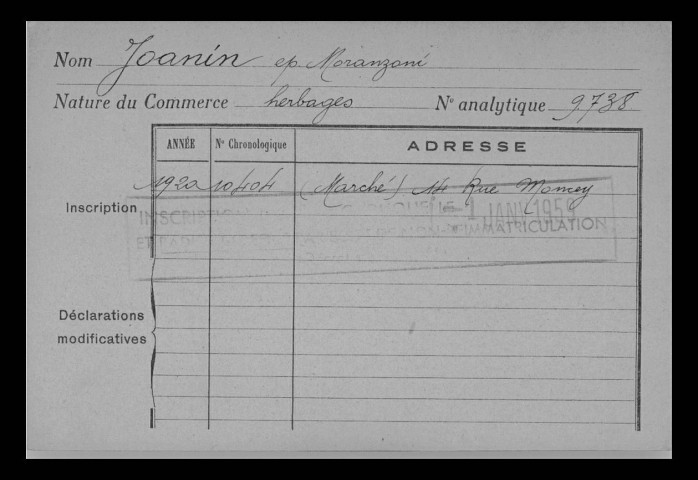 Nom Joanin ep. Moranzoni
Nature du Commerce herbages N° analytique 9.738
ANNÉE N° Chronologique ADRESSE
Inscription 1920 10404 (Marché) 14 Rue Moncey
INSCRIPTION 1 JANV 1959
ET RADI IMMATRICULATION
Déclarations
modificatives